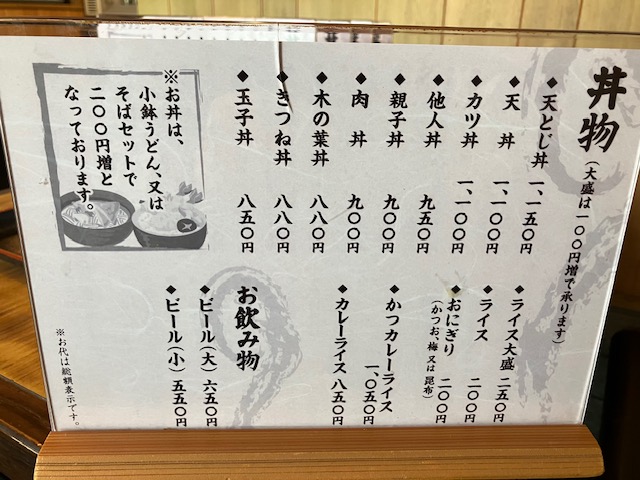 丼物(大盛は一〇〇円増で承ります)
◆天とじ丼 一、一五〇円
◆天丼 一、一〇〇円
◆カツ丼 一、一〇〇円
◆他人丼 九五〇円
◆親子丼 九〇〇円
◆肉丼 九〇〇円
◆木の葉丼 八八〇円
◆きつね丼 八八〇円
◆玉子丼 八五〇円
※お丼は、
小鉢うどん、又は
そばセットで
二〇〇円増と
なっております。
◆ライス大盛 二五〇円
◆ライス 二〇〇円
◆おにぎり 二〇〇円
(かつお、梅 又は 昆布)
◆かつカレーライス 一、〇五〇円
◆カレーライス 八五〇円
お飲み物
◆ビール(大) 六五〇円
◆ビール(小) 五五〇円
※お代は総額表示です。